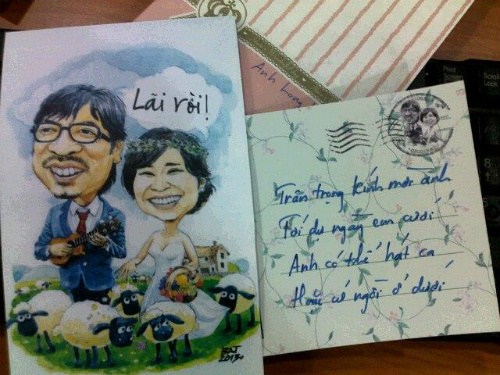 Lãi rồi!
2013
Anh
Trân trọng kính mời anh
Tới dự ngày em cưới
Anh có thể hát ca
Hoặc cứ ngồi ở dưới